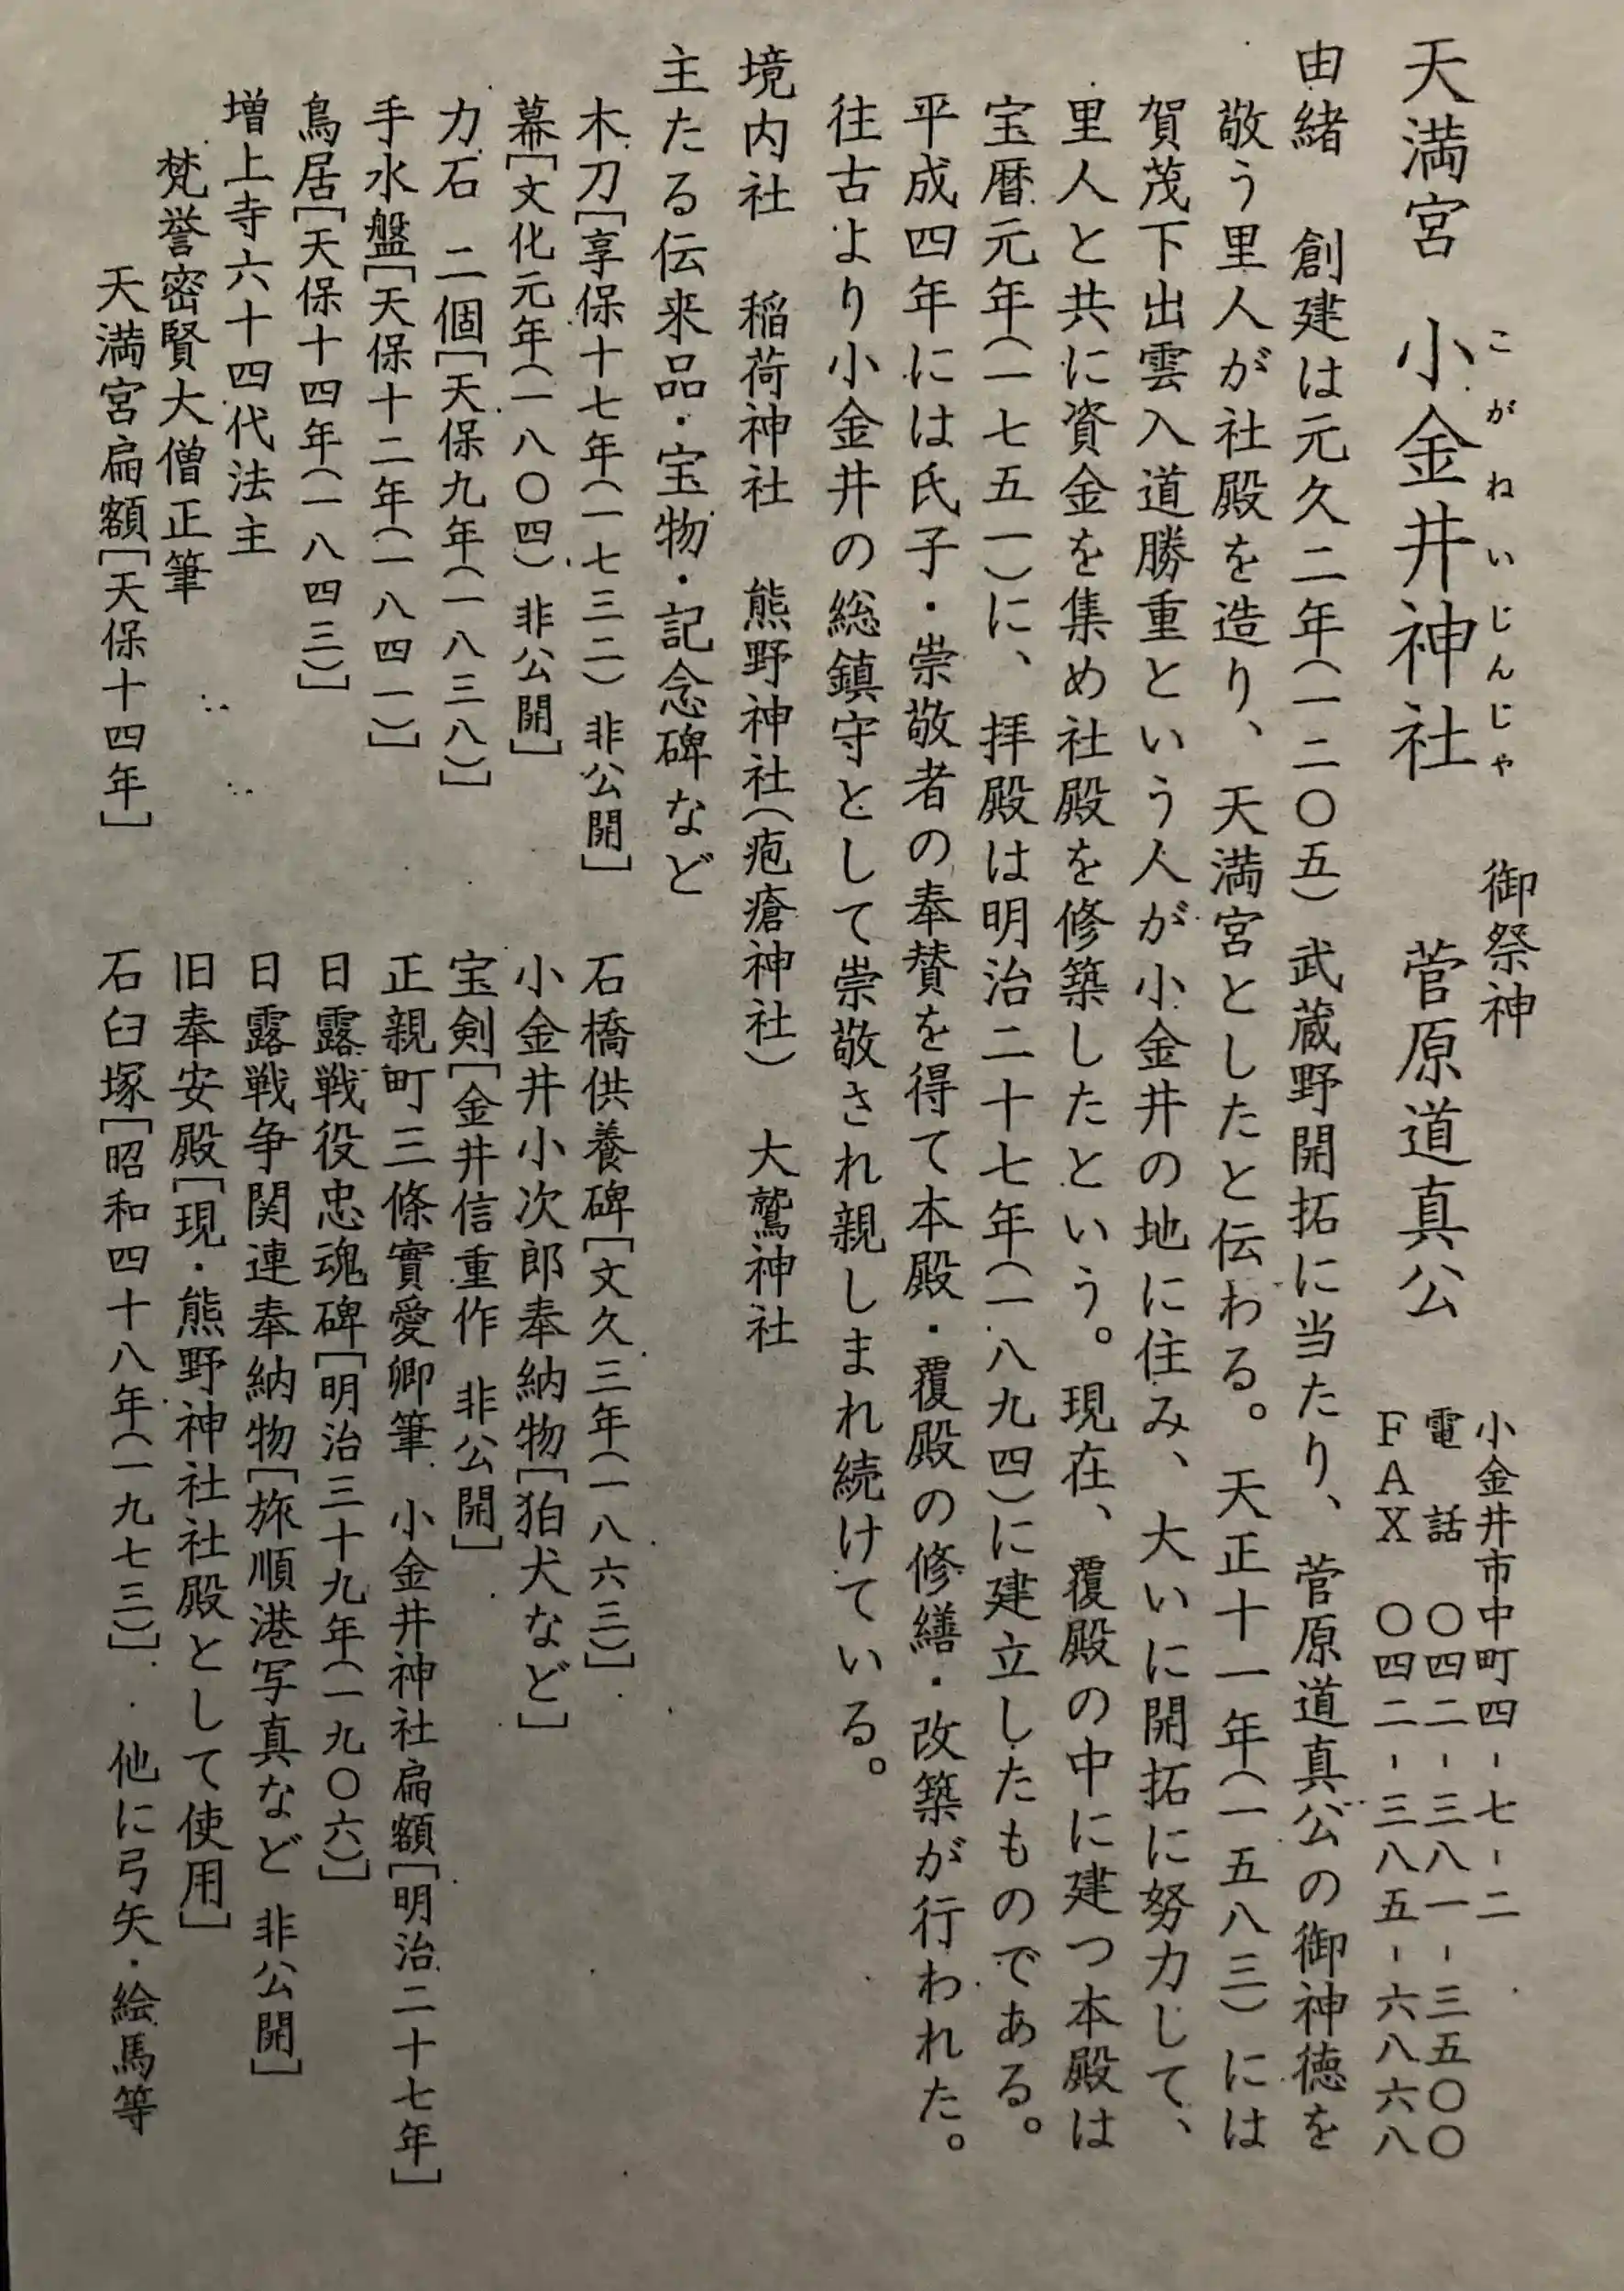 天満宮 小金井神社 御祭神 菅原道真公
こがねいじんじゃ
小金井市中町四-七-二
電話 〇四二-三八一-三五〇〇
FAX 〇四二-三八五-六八六八
由緒 創建は元久二年(一二〇五)武蔵野開拓に当たり、菅原道真公の御神徳を
敬う里人が社殿を造り、天満宮としたと伝わる。天正十一年(一五八三)には
賀茂下出雲入道勝重という人が小金井の地に住み、大いに開拓に努力して、
里人と共に資金を集め社殿を修築したという。現在、覆殿の中に建つ本殿は
宝暦元年(一七五一)に、拝殿は明治二十七年(一八九四)に建立したものである。
平成四年には氏子・崇敬者の奉賛を得て本殿・覆殿の修繕・改築が行われた。
往古より小金井の総鎮守として崇敬され親しまれ続けている。
境内社 稲荷神社 熊野神社(疱瘡神社) 大鷲神社
主たる伝来品・宝物・記念碑など
木刀[享保十七年(一七三二)非公開]
幕[文化元年(一八〇四)非公開]
力石 二個[天保九年(一八三八)]
手水盤[天保十二年(一八四一)]
鳥居[天保十四年(一八四三)]
増上寺六十四代法主
梵誉密賢大僧正筆
天満宮扁額[天保十四年]
石橋供養碑[文久三年(一八六三)]
小金井小次郎奉納物[狛犬など]
宝剣[金井信重作 非公開]
正親町三條實愛卿筆 小金井神社扁額[明治二十七年]
日露戦役忠魂碑[明治三十九年(一九〇六)]
日露戦争関連奉納物[旅順港写真など 非公開]
旧奉安殿[現・熊野神社社殿として使用]
石臼塚[昭和四十八年(一九七三)] 他に弓矢・絵馬等